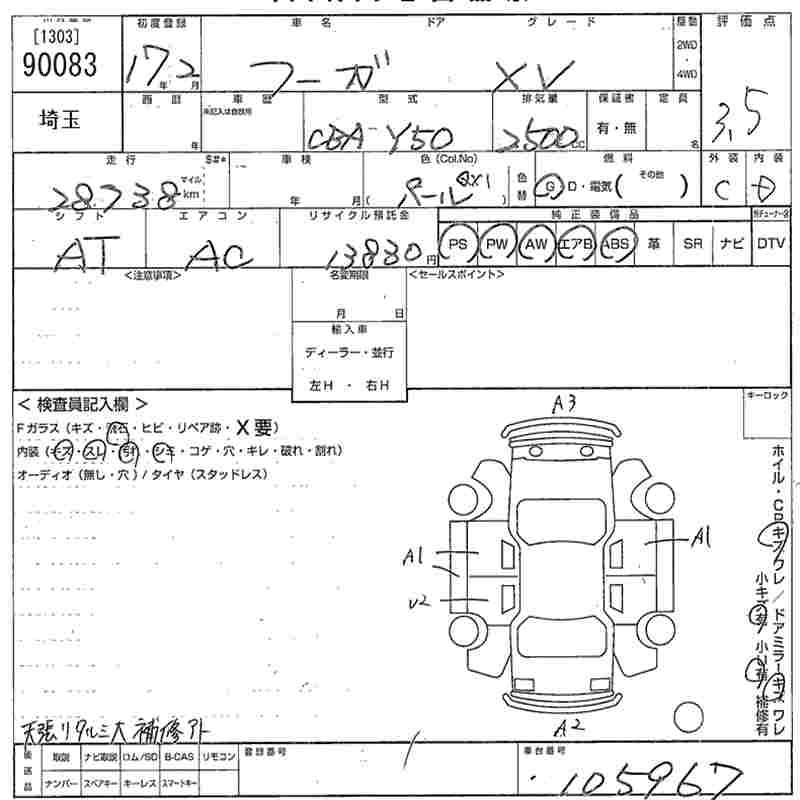 [1303]
90083
埼玉
初度登録
17年2月
車名
フーガ
ドア
グレード
XV
駆動
2WD
・
4WD
評価点
3.5
西暦
年
車歴
未記入は自家用
型式
CBA-Y50
排気量
2500cc
保証書
有・無
定員
名
走行
S#*
28738
マイル
km
車検
年 月(
色(Col.No)
パール QX1
)
色替
燃料
G D・電気( その他 )
外装
C
内装
D
シフト
AT
エアコン
AC
リサイクル預託金
13830円
純正装備品
PS PW AW エアB ABS 革 SR ナビ DTV
<注意事項>
名変期限
月 日
輸入車
ディーラー・並行
左H ・ 右H
<セールスポイント>
< 検査員記入欄 >
Fガラス(キズ・飛石・ヒビ・リペア跡・X要)
内装(キズ・スレ・汚れ・シミ・コゲ・穴・キレ・破れ・割れ)
オーディオ(無し・穴)/タイヤ(スタッドレス)
キーロック
A3
A1
A1
U2
A2
ホイル・CPキズワレ/ドアミラーキズワレ
小キズ有 小U有 補修有
天張リタルミ大 補修アト
後送品
取説 ナビ取説 ロム/SD B-CAS リモコン
ナンバー スペアキー キーレス スマートキー
登録番号
車台番号
105967